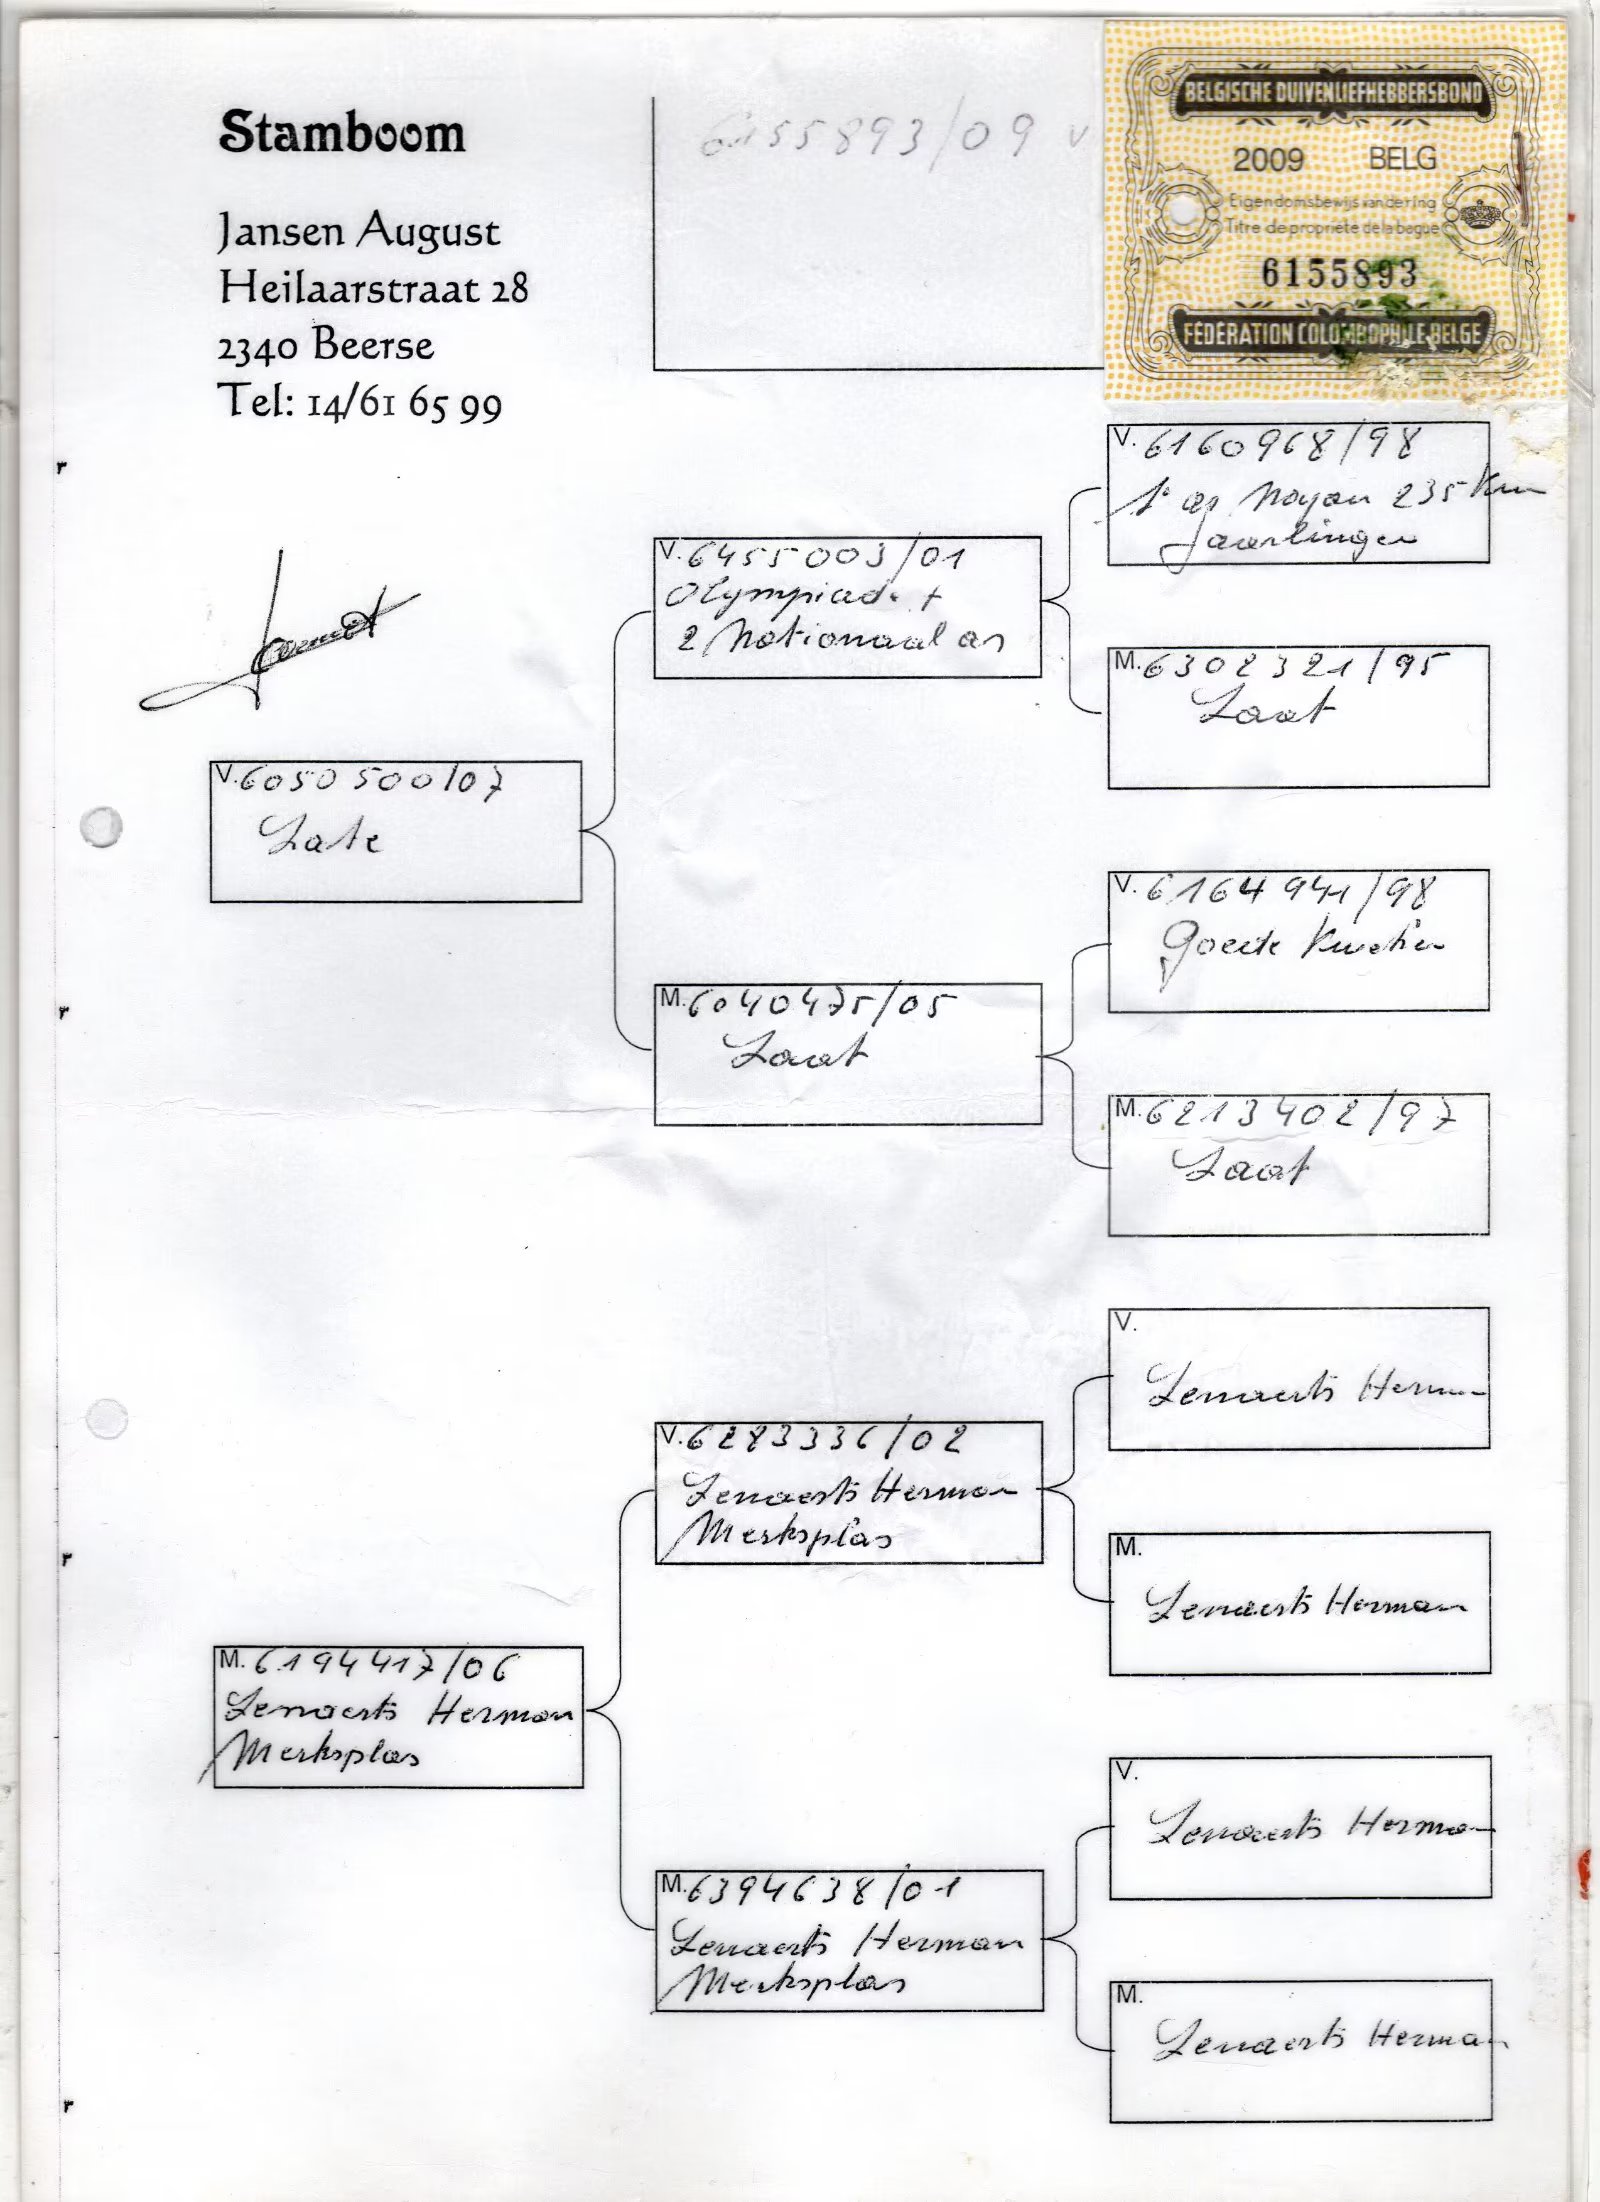 Stamboom
Jansen August
Heilaarstraat 28
2340 Beerse
Tel: 14/61 65 99
6155893/09 V
BELGISCHE DUIVENLIEFHEBBERSBOND
2009 BELG
Eigendomsbewijs van de ring
Titre de propriété de la bague
6155893
FEDERATION COLOMBOPHILE BELGE
V. 6050500/07
Late
V. 6455003/01
Olympiade +
2 Nationaal as
V. 6160968/98
1e as Noyon 235 Km
Jaarlingen
M. 6302321/95
Laat
M. 6040475/05
Laat
V. 6164941/98
Goede
M. 6213402/97
Laat
M. 6194417/06
Lenaerts Herman
Merksplas
V. 6283336/02
Lenaerts Herman
Merksplas
V.
Lenaerts Herman
M.
Lenaerts Herman
M. 6394638/01
Lenaerts Herman
Merksplas
V.
Lenaerts Herman
M.
Lenaerts Herman